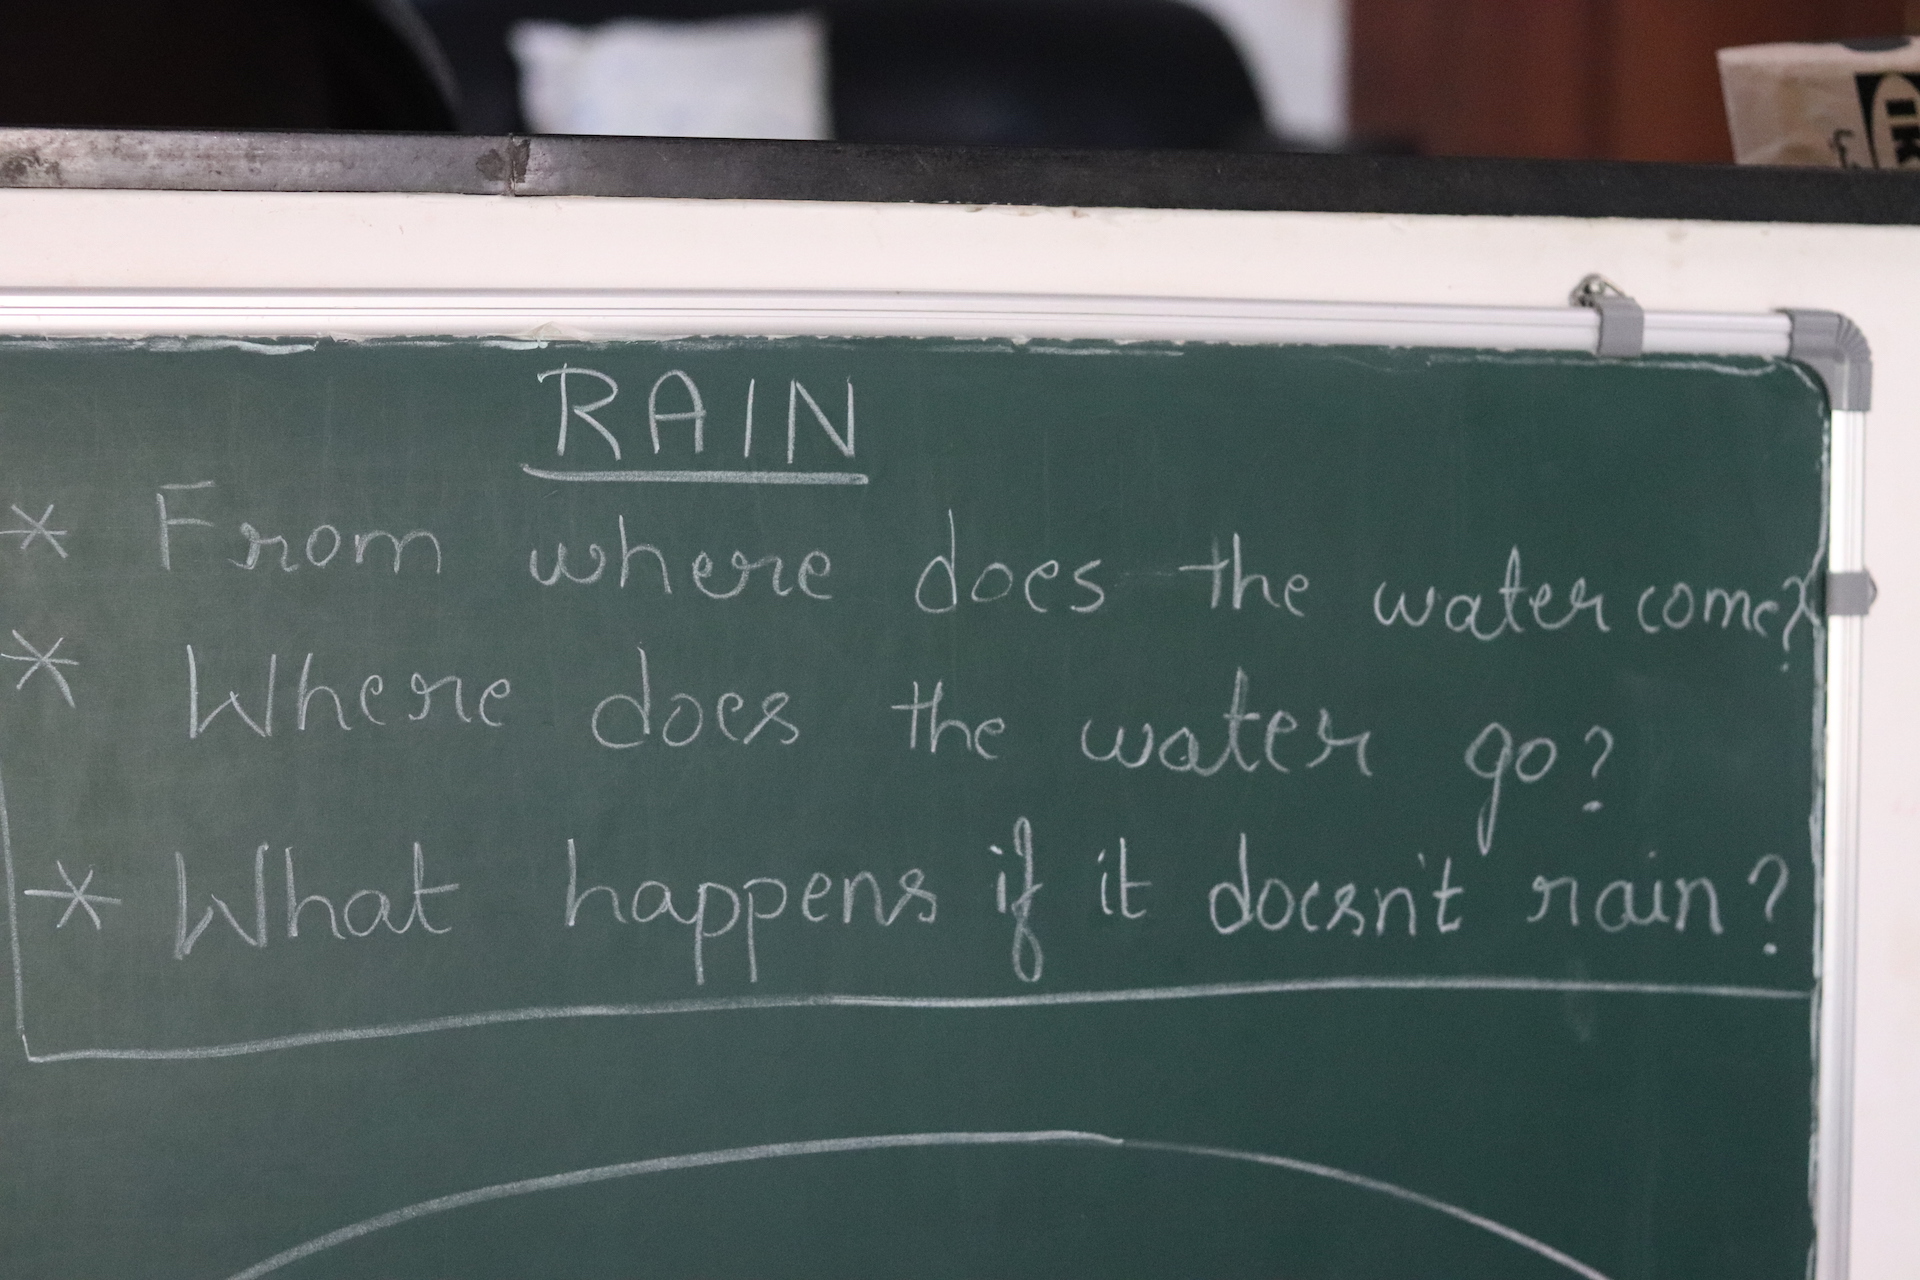 RAIN
* From where does the water come?
* Where does the water go?
* What happens if it doesn't rain?